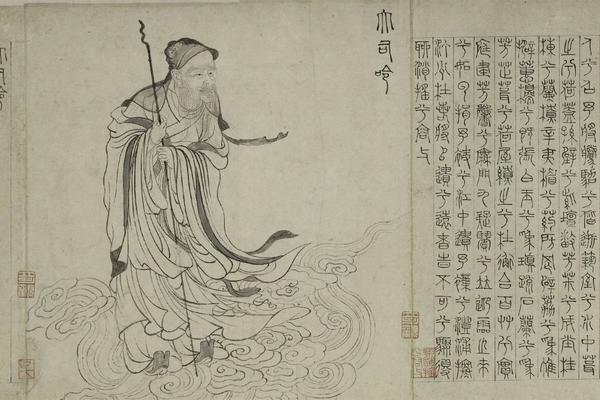 人兮召予將騰駕兮偕逝築室兮水中葺
之兮荷蓋蓀壁兮紫壇播芳椒兮成堂桂
棟兮蘭橑辛夷楣兮藥房罔薜荔兮為帷
擗蕙櫋兮既張白玉兮為瑱疏石蘭兮為
芳芷葺兮荷屋繚之兮杜衡合百草兮實
庭建芳馨兮廡門九疑繽兮並迎靈之來
兮如云捐予袂兮江中遺予褋兮澧浦搴
汀州杜若將以遺兮遠者時不可兮驟得
聊逍遙兮容與
大司命